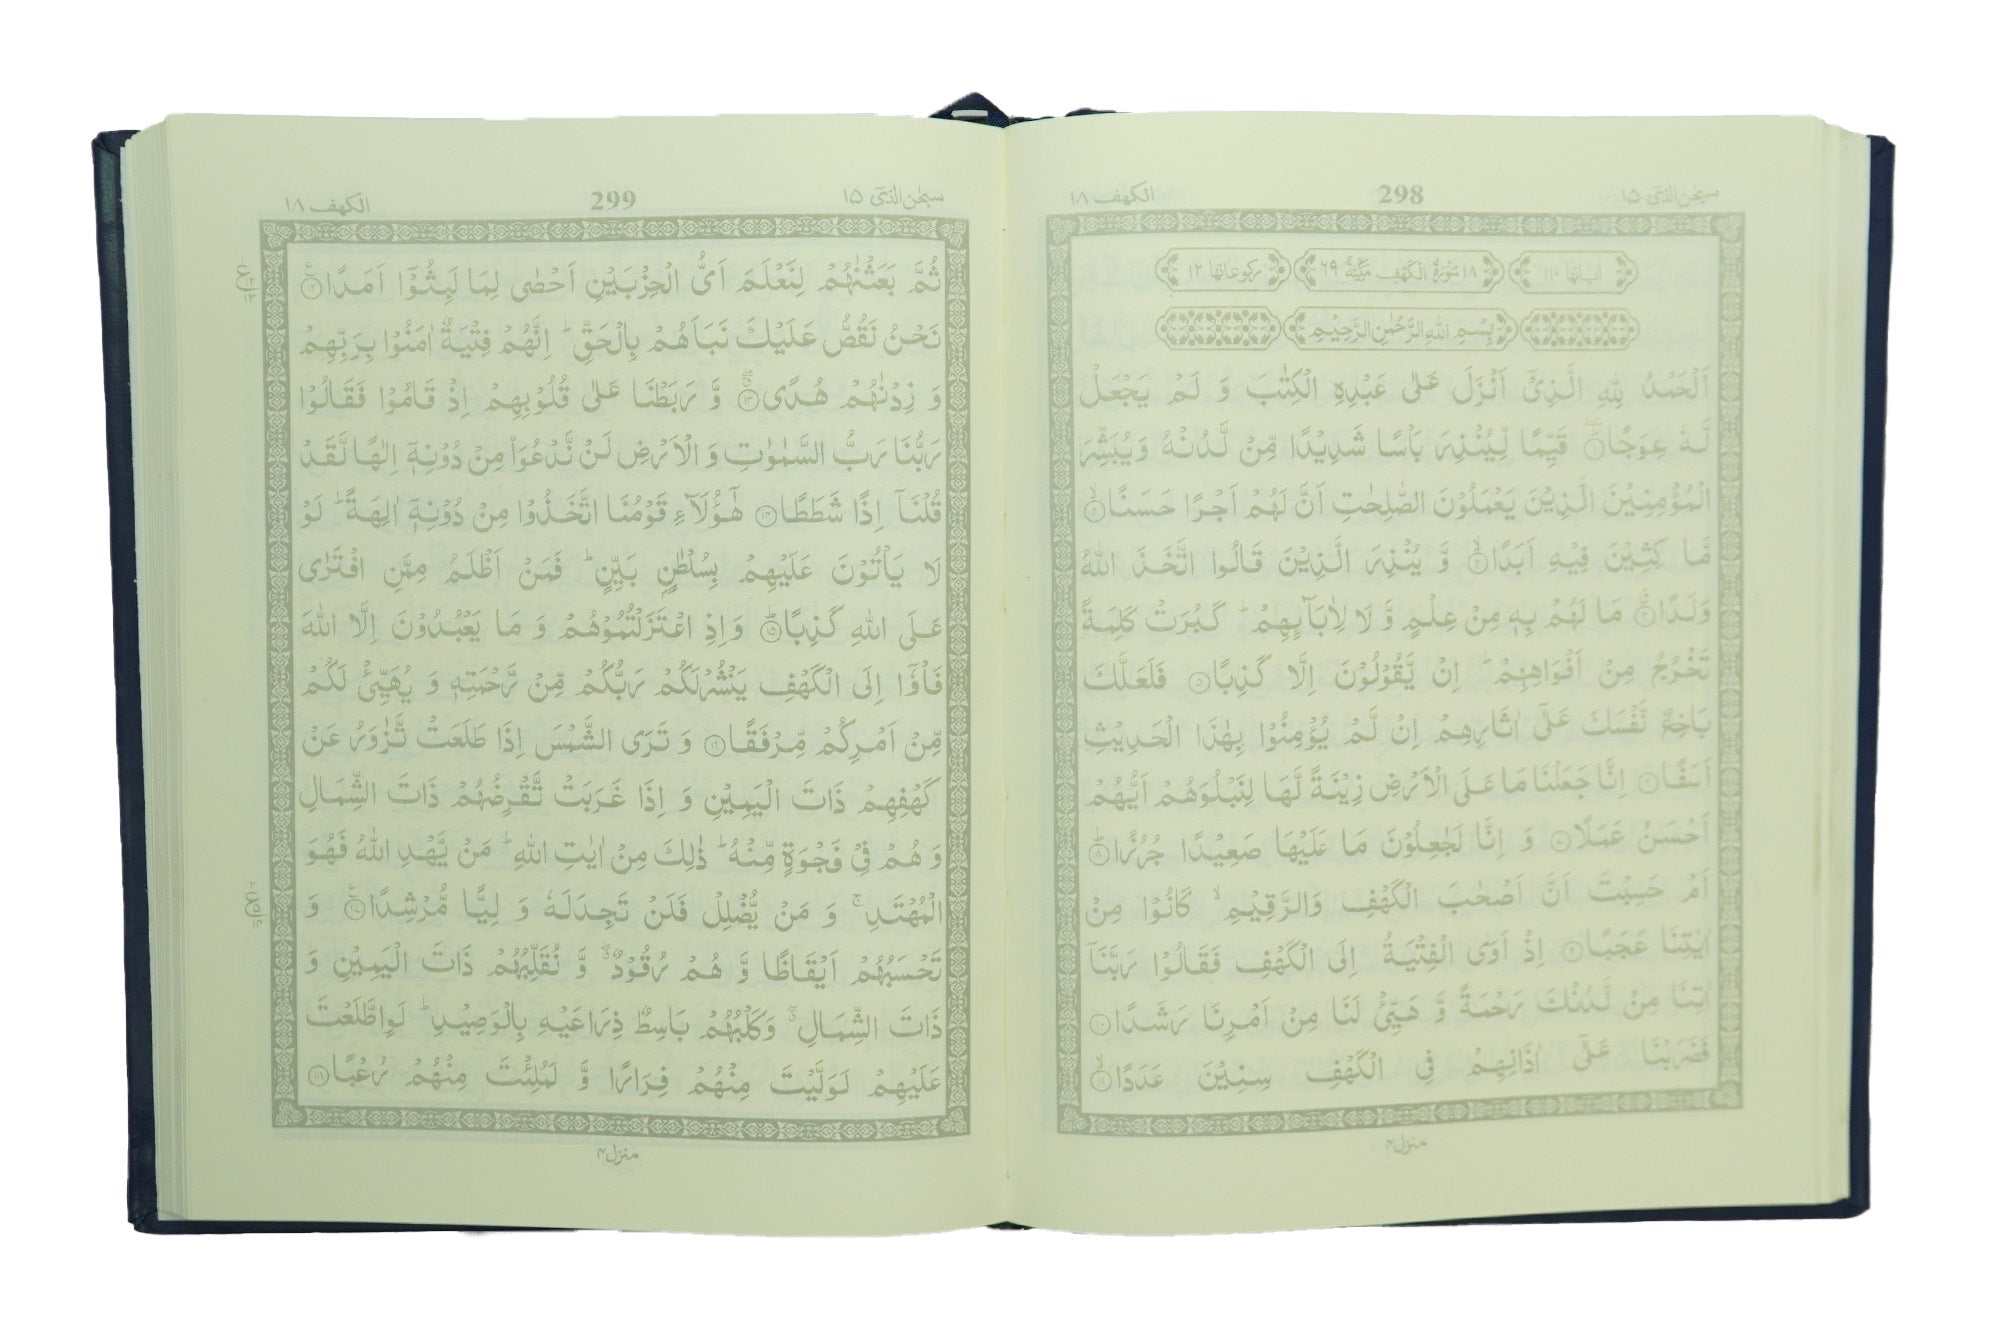 سبحٰن الذیٓ ۱۵
298
الكهف ۱۸
اٰیاتها ۱۱۰
۱۸ سُوْرَةُ الْكَهْفِ مَكِّیَّةٌ ۶۹
رکوعاتها ۱۲
بِسْمِ اللّٰهِ الرَّحْمٰنِ الرَّحِیْمِ
اَلْحَمْدُ لِلّٰهِ الَّذِیْۤ اَنْزَلَ عَلٰی عَبْدِهِ الْكِتٰبَ وَ لَمْ یَجْعَلْ
لَّهٗ عِوَجًا ۱ قَیِّمًا لِّیُنْذِرَ بَاْسًا شَدِیْدًا مِّنْ لَّدُنْهُ وَیُبَشِّرَ
الْمُؤْمِنِیْنَ الَّذِیْنَ یَعْمَلُوْنَ الصّٰلِحٰتِ اَنَّ لَهُمْ اَجْرًا حَسَنًا ۲
مَّا كِثِیْنَ فِیْهِ اَبَدًا ۳ وَّ یُنْذِرَ الَّذِیْنَ قَالُوا اتَّخَذَ اللّٰهُ
وَلَدًا ۴ مَا لَهُمْ بِهٖ مِنْ عِلْمٍ وَّ لَا لِاٰبَآىِٕهِمْ ؕ كَبُرَتْ كَلِمَةً
تَخْرُجُ مِنْ اَفْوَاهِهِمْ ؕ اِنْ یَّقُوْلُوْنَ اِلَّا كَذِبًا ۵ فَلَعَلَّكَ
بَاخِعٌ نَّفْسَكَ عَلٰۤی اٰثَارِهِمْ اِنْ لَّمْ یُؤْمِنُوْا بِهٰذَا الْحَدِیْثِ
اَسَفًا ۶ اِنَّا جَعَلْنَا مَا عَلَی الْاَرْضِ زِیْنَةً لَّهَا لِنَبْلُوَهُمْ اَیُّهُمْ
اَحْسَنُ عَمَلًا ۷ وَ اِنَّا لَجٰعِلُوْنَ مَا عَلَیْهَا صَعِیْدًا جُرُزًا ۸
اَمْ حَسِبْتَ اَنَّ اَصْحٰبَ الْكَهْفِ وَالرَّقِیْمِ ۙ كَانُوْا مِنْ
اٰیٰتِنَا عَجَبًا ۹ اِذْ اَوَی الْفِتْیَةُ اِلَی الْكَهْفِ فَقَالُوْا رَبَّنَاۤ
اٰتِنَا مِنْ لَّدُنْكَ رَحْمَةً وَّ هَیِّئْ لَنَا مِنْ اَمْرِنَا رَشَدًا ۱۰
فَضَرَبْنَا عَلٰۤی اٰذَانِهِمْ فِی الْكَهْفِ سِنِیْنَ عَدَدًا ۱۱
منزل ۴
سبحٰن الذیٓ ۱۵
299
الكهف ۱۸
ثُمَّ بَعَثْنٰهُمْ لِنَعْلَمَ اَیُّ الْحِزْبَیْنِ اَحْصٰی لِمَا لَبِثُوْۤا اَمَدًا ۱۲
نَحْنُ نَقُصُّ عَلَیْكَ نَبَاَهُمْ بِالْحَقِّ ؕ اِنَّهُمْ فِتْیَةٌ اٰمَنُوْا بِرَبِّهِمْ
وَ زِدْنٰهُمْ هُدًی ۱۳ وَّ رَبَطْنَا عَلٰی قُلُوْبِهِمْ اِذْ قَامُوْا فَقَالُوْا
رَبُّنَا رَبُّ السَّمٰوٰتِ وَ الْاَرْضِ لَنْ نَّدْعُوَا۠ مِنْ دُوْنِهٖۤ اِلٰهًا لَّقَدْ
قُلْنَاۤ اِذًا شَطَطًا ۱۴ هٰۤؤُلَآءِ قَوْمُنَا اتَّخَذُوْا مِنْ دُوْنِهٖۤ اٰلِهَةً ؕ لَوْ
لَا یَاْتُوْنَ عَلَیْهِمْ بِسُلْطٰنٍۭ بَیِّنٍ ؕ فَمَنْ اَظْلَمُ مِمَّنِ افْتَرٰی
عَلَی اللّٰهِ كَذِبًا ۱۵ وَاِذِ اعْتَزَلْتُمُوْهُمْ وَ مَا یَعْبُدُوْنَ اِلَّا اللّٰهَ
فَاْوٗۤا اِلَی الْكَهْفِ یَنْشُرْلَكُمْ رَبُّكُمْ مِّنْ رَّحْمَتِهٖ وَ یُهَیِّئْ لَكُمْ
مِّنْ اَمْرِكُمْ مِّرْفَقًا ۱۶ وَ تَرَی الشَّمْسَ اِذَا طَلَعَتْ تَّزٰوَرُ عَنْ
كَهْفِهِمْ ذَاتَ الْیَمِیْنِ وَ اِذَا غَرَبَتْ تَّقْرِضُهُمْ ذَاتَ الشِّمَالِ
وَ هُمْ فِیْ فَجْوَةٍ مِّنْهُ ؕ ذٰلِكَ مِنْ اٰیٰتِ اللّٰهِ ؕ مَنْ یَّهْدِ اللّٰهُ فَهُوَ
الْمُهْتَدِ ۚ وَ مَنْ یُّضْلِلْ فَلَنْ تَجِدَ لَهٗ وَ لِیًّا مُّرْشِدًا ۱۷ وَ
تَحْسَبُهُمْ اَیْقَاظًا وَّ هُمْ رُقُوْدٌ ۖۗ وَّ نُقَلِّبُهُمْ ذَاتَ الْیَمِیْنِ وَ
ذَاتَ الشِّمَالِ ۖۗ وَكَلْبُهُمْ بَاسِطٌ ذِرَاعَیْهِ بِالْوَصِیْدِ ؕ لَوِاطَّلَعْتَ
عَلَیْهِمْ لَوَلَّیْتَ مِنْهُمْ فِرَارًا وَّ لَمُلِئْتَ مِنْهُمْ رُعْبًا ۱۸
منزل ۴